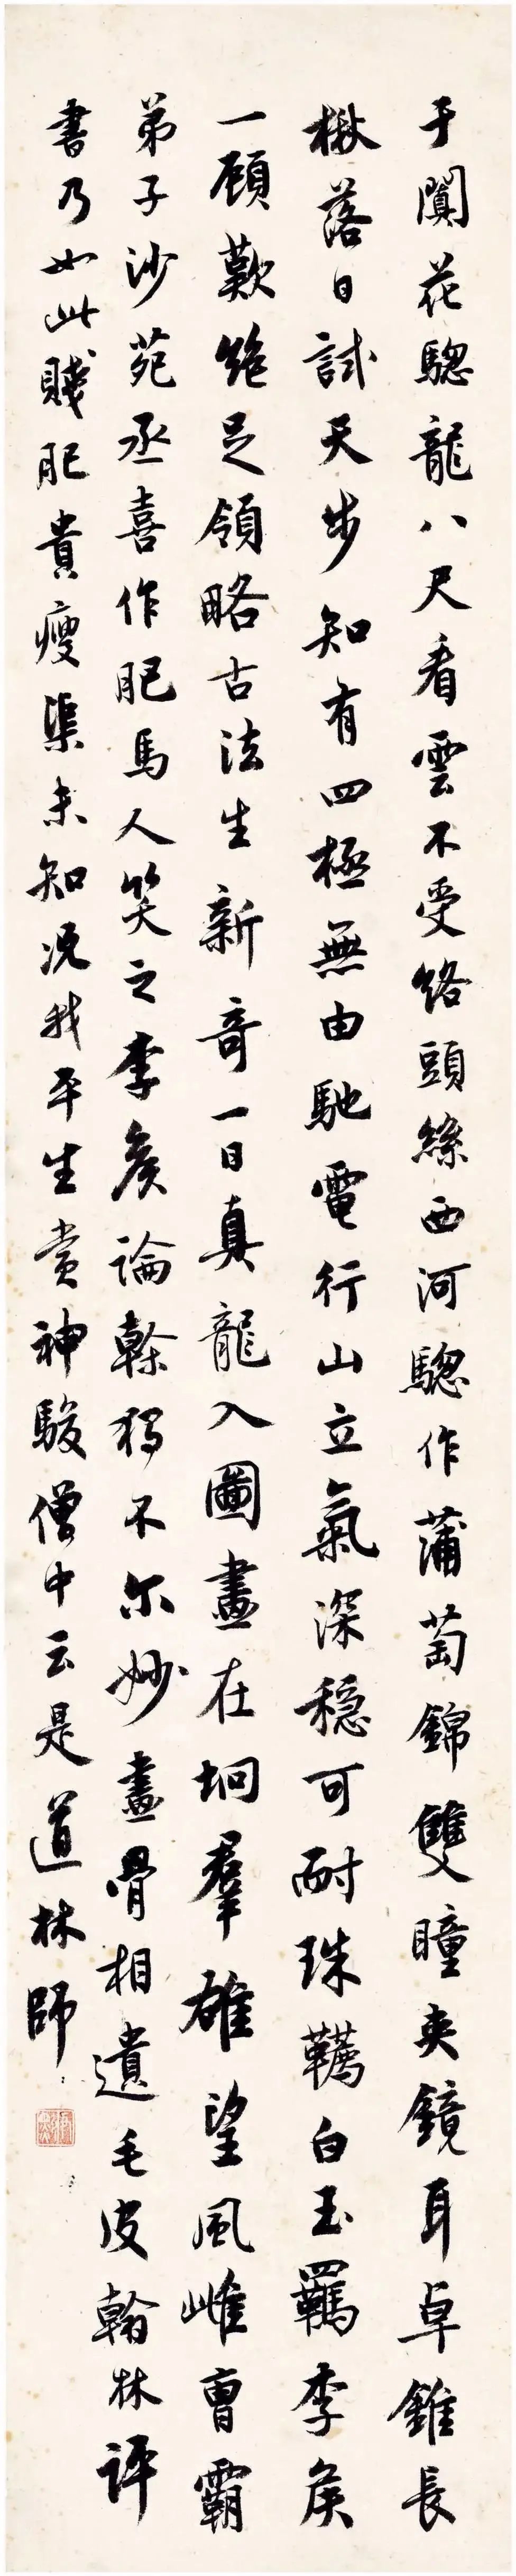 于闐花驄龍八尺看雲不受絡頭絲西河驄作蒲萄錦雙瞳夾鏡耳卓錐長
楸落日試天步知有四極無由馳電行山立氣深穩可耐珠韉白玉羈李矦
一顧歎絶足領略古法生新奇一日真龍入圖畫在坰羣雄望風雌曹霸
弟子沙苑丞喜作肥馬人笑之李矦論榦獨不尔妙畫骨相遺毛皮翰林評
書乃如此賤肥貴瘦渠未知况我平生賞神駿僧中云是道林師